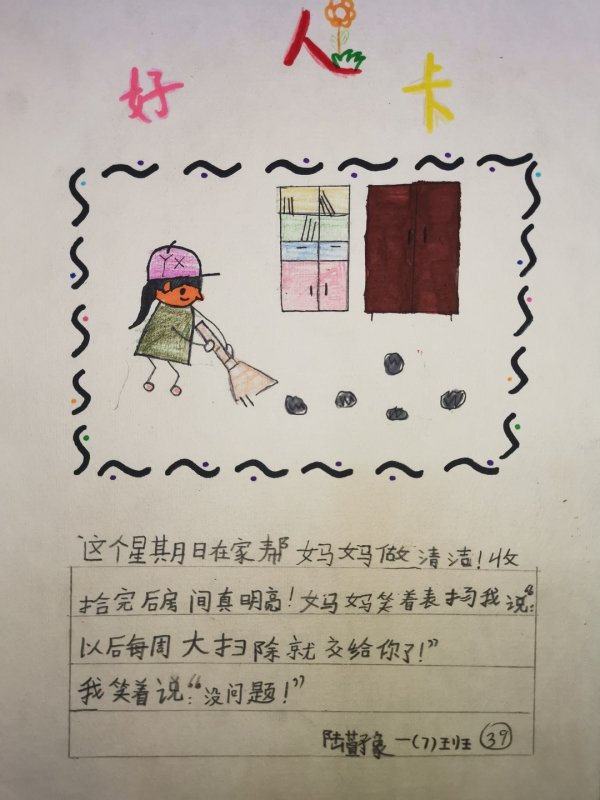 好人卡
YX
这个星期日在家帮妈妈做清洁！收
拾完后房间真明亮！妈妈笑着表扬我说：“
以后每周大扫除就交给你了！”
我笑着说：“没问题！”
陆 一(7)班 39